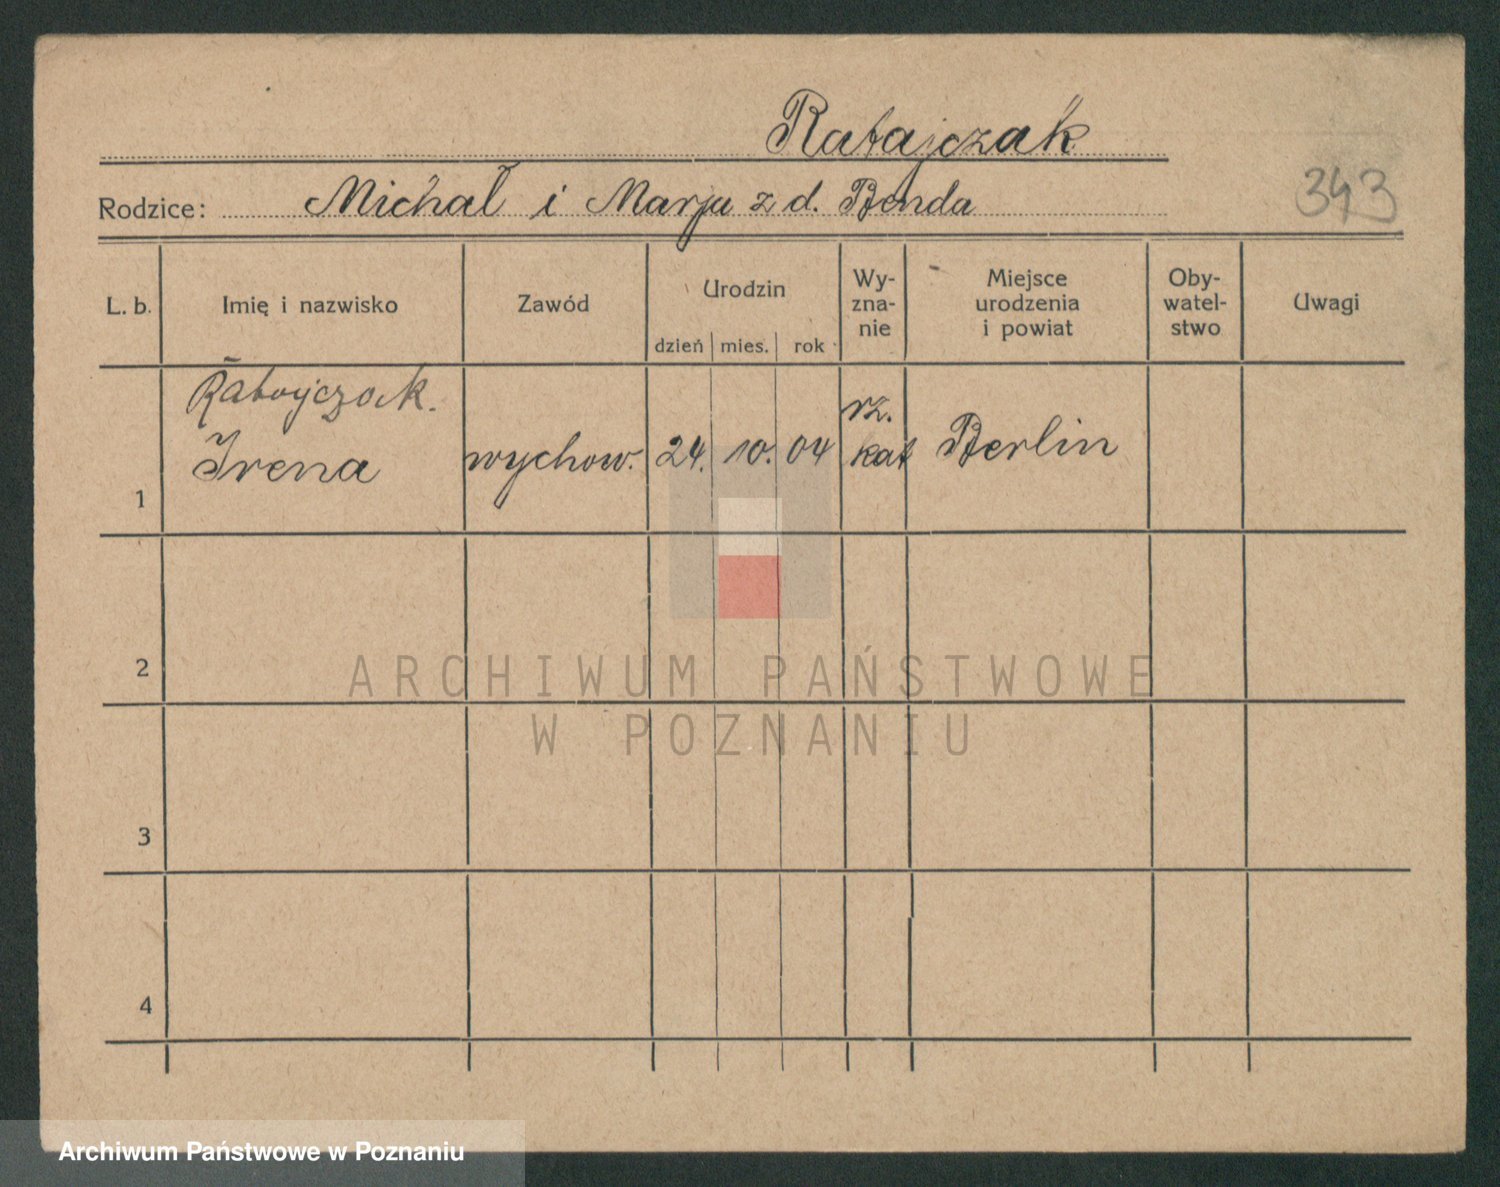 Ratajczak
Rodzice: Michał i Marja z d. Benda
343
L. b. Imię i nazwisko Zawód Urodzin Wy-zna-nie Miejsce urodzenia i powiat Oby-watel-stwo Uwagi
dzień mies. rok
Ratajczak.
Irena wychow. 24. 10. 04 rz. kat Berlin
1
2
ARCHIWUM PAŃSTWOWE
W POZNANIU
3
4
Archiwum Państwowe w Poznaniu